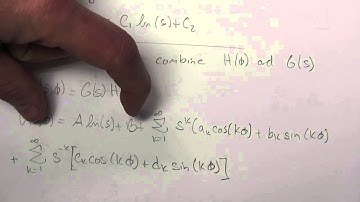 = C₁ ln(s) + C₂
combine H(ϕ) ad G(s)
ϕ) = G(s) H
= A ln(s) + B + ∞∑k=1 sᵏ(aₖ cos(kϕ) + bₖ sin(kϕ)
+ ∞∑k=1 s⁻ᵏ[cₖ cos(kϕ) + dₖ sin(kϕ)]